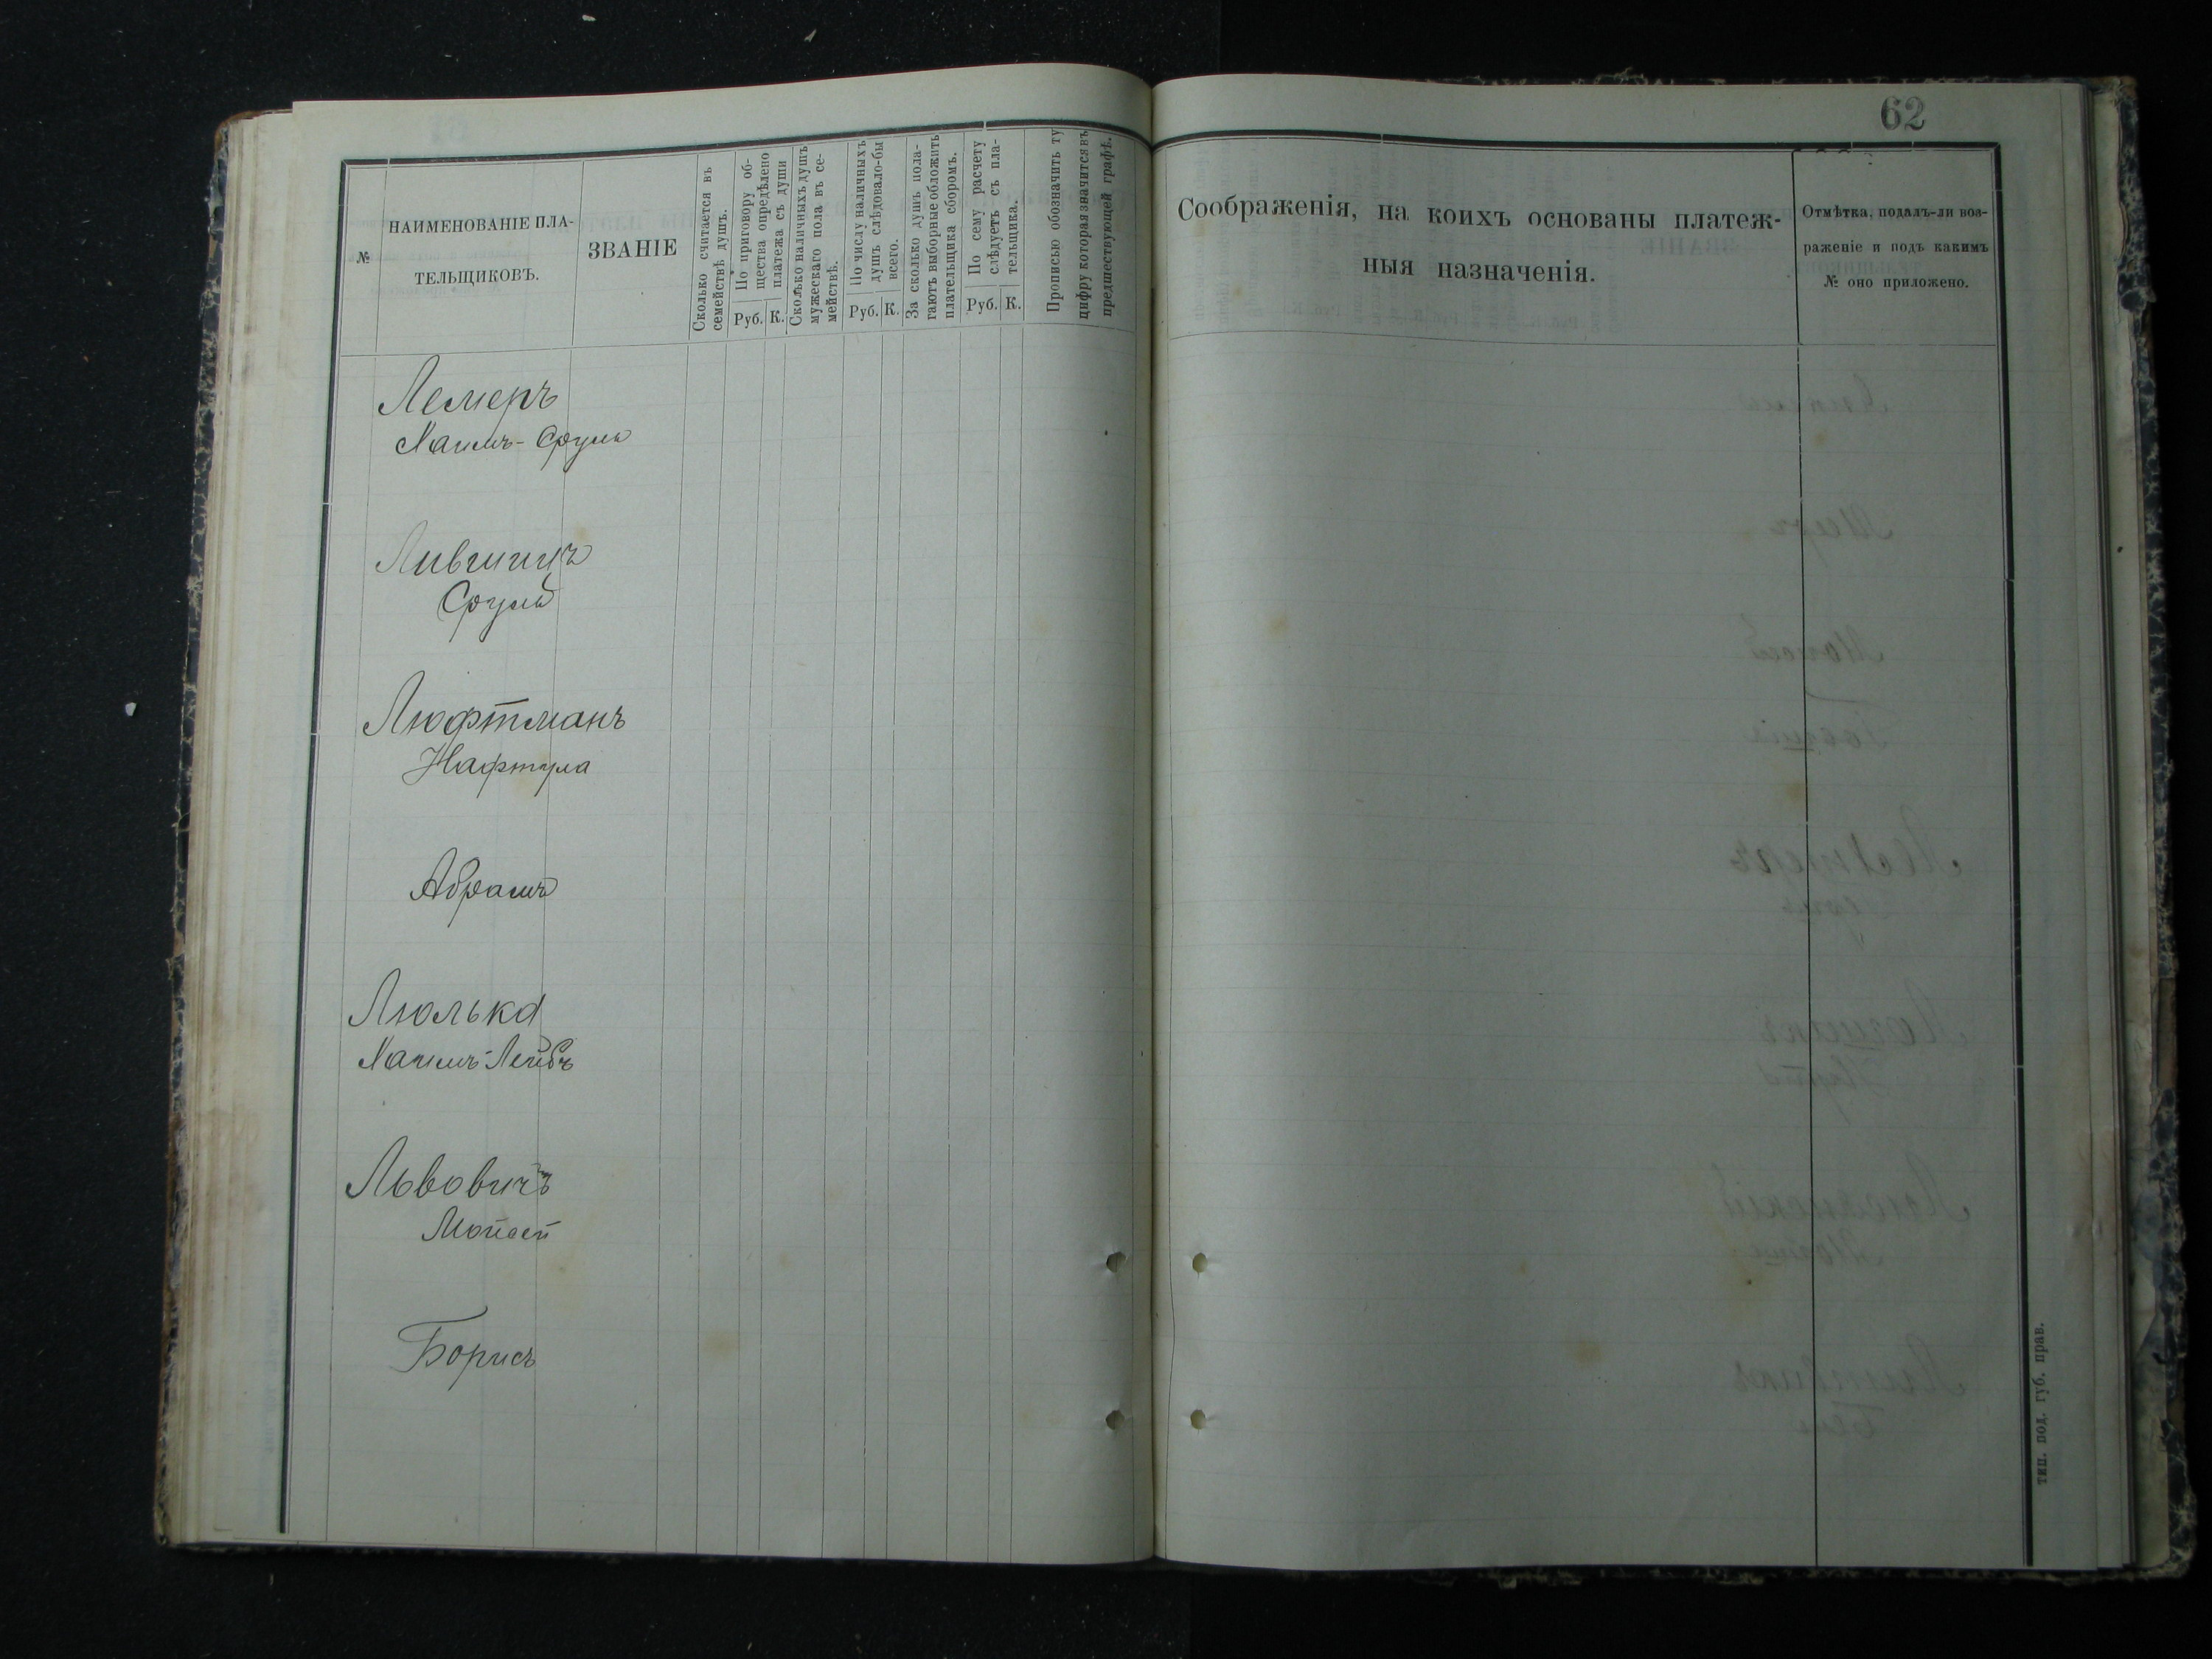 62
№
НАИМЕНОВАНІЕ ПЛА-
ТЕЛЬЩИКОВЪ.
ЗВАНІЕ
Сколько считается въ
семействѣ душъ.
По приговору об-
щества опредѣлено
платежа съ души
Руб. К.
Сколько наличныхъ душъ
мужескаго пола въ се-
мействѣ.
По числу наличныхъ
душъ слѣдовало-бы
всего.
Руб. К.
За сколько душъ пола-
гаютъ выборные обложить
плательщика сборомъ.
По сему расчету
слѣдуетъ съ пла-
тельщика.
Руб. К.
Прописью обозначить ту
цифру которая значится въ
предшествующей графѣ.
Соображенія, на коихъ основаны платеж-
ныя назначенія.
Отмѣтка, подалъ-ли воз-
раженіе и подъ какимъ
№ оно приложено.
Лемеръ
Хаимъ-Сруль
Лившицъ
Сруль
Люфтманъ
Нафтула
Абрамъ
Люлька
Хаимъ-Лейбъ
Львовичъ
Мойсей
Борисъ
тип. под. губ. прав.